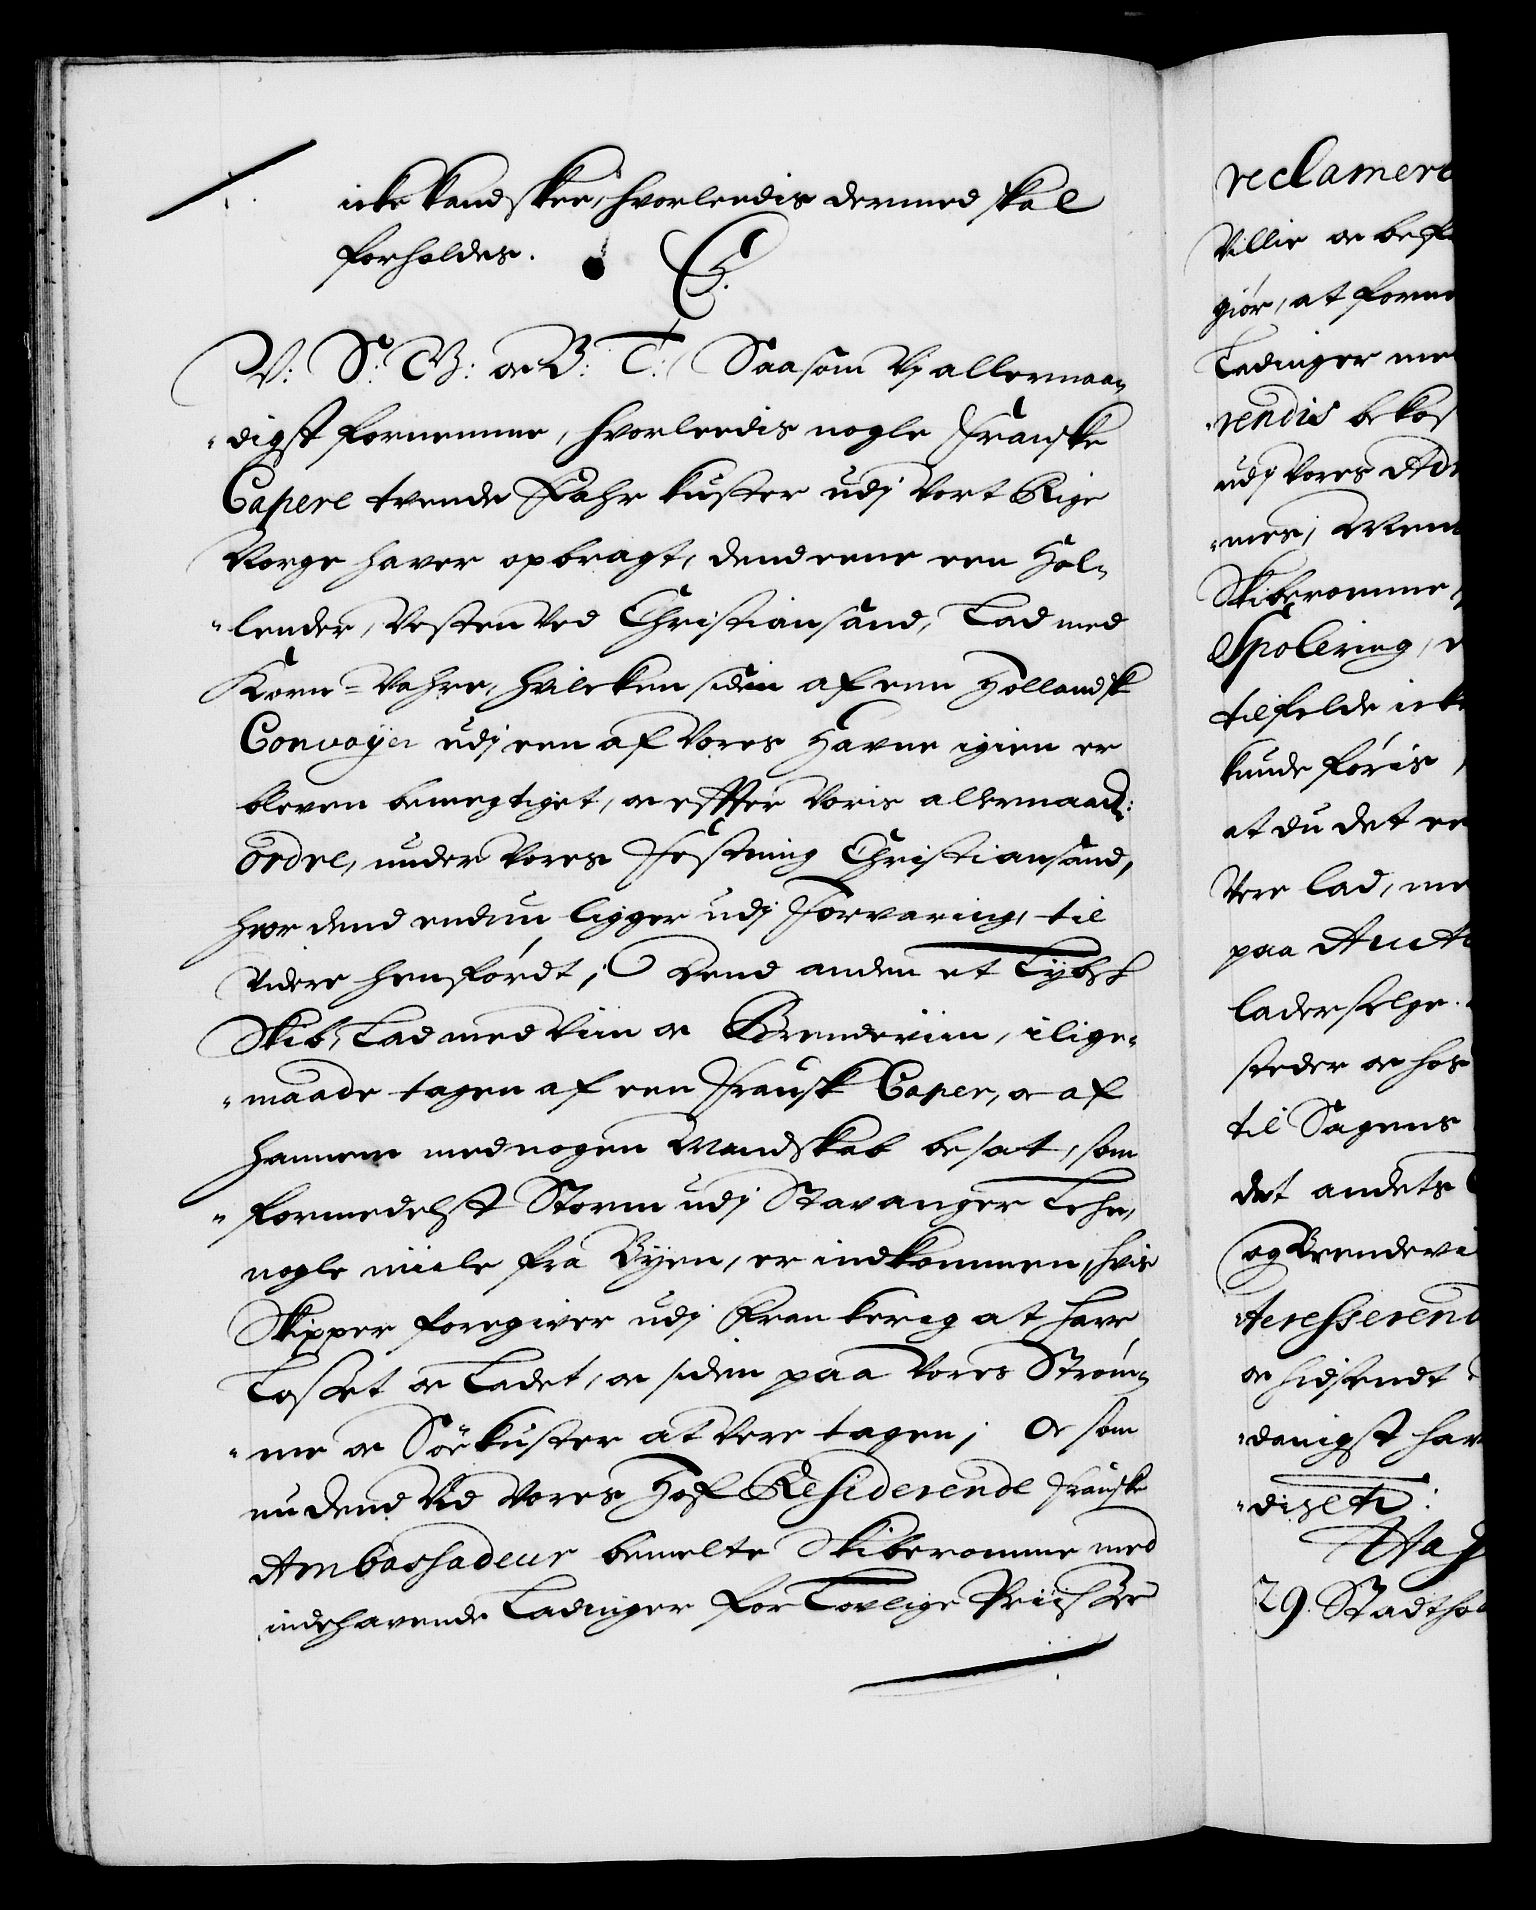 icke kand skee, hvorleedis dermed skal
forholdes.
C5.
V: S: G: oc B: T: Saasom Vj allernaa-
digst fornemme, hvorleedis nogle Franske
Capere trende Fahrkuster udj Vort Rige
Norge haver opbragt, dend eene een Hol-
lender, Vesten Ved Christiansand, Lad med
Korn-Vahre, hvilcken siden af een Hollandsk
Convoyer udj een af Vores Havne igien er
bleven bemegtiget, oc effter Voris allernaad:
ordre, under Vores Festning Christiansand,
hvor dend endnu ligger udj Forvaring, til
Videre henfördt; Dend anden et Lÿbsk
Skib, Lad med Viin oc Brendeviin, i lige-
maade tagen af een Fransk Caper, oc af
hannem med nogen Mandskab besat, som
formedelst Storm udj Stavanger Lehn,
nogle miile fra Byen, er indkommen, hvis
Skipper foregiver udj Frankerig at have
Losset oc Ladet, oc siden paa Vores Ström-
me oc Söekuster at Vere tagen; Oc som
nu dend Vid Vores Hof Residerende Franske
Ambassadeur bemelte Skiberomme med
indehavende Ladninger for Lovlige Priiser
reclamere
Villie oc befa
giör, at forme
Ladinger me
rendis bekos
udj Vores Adm
mes, Men
Skiberomme,
Spolering,
tilfelde icke
kunde föris,
at du det ee
Vere lad, me
paa Aucti
lader selge.
steder oc hos
til Sagens
det andets
og Brendevi
teresserend
oc hidsendt
danigst hav
diset:
Ha
29. Stadthol